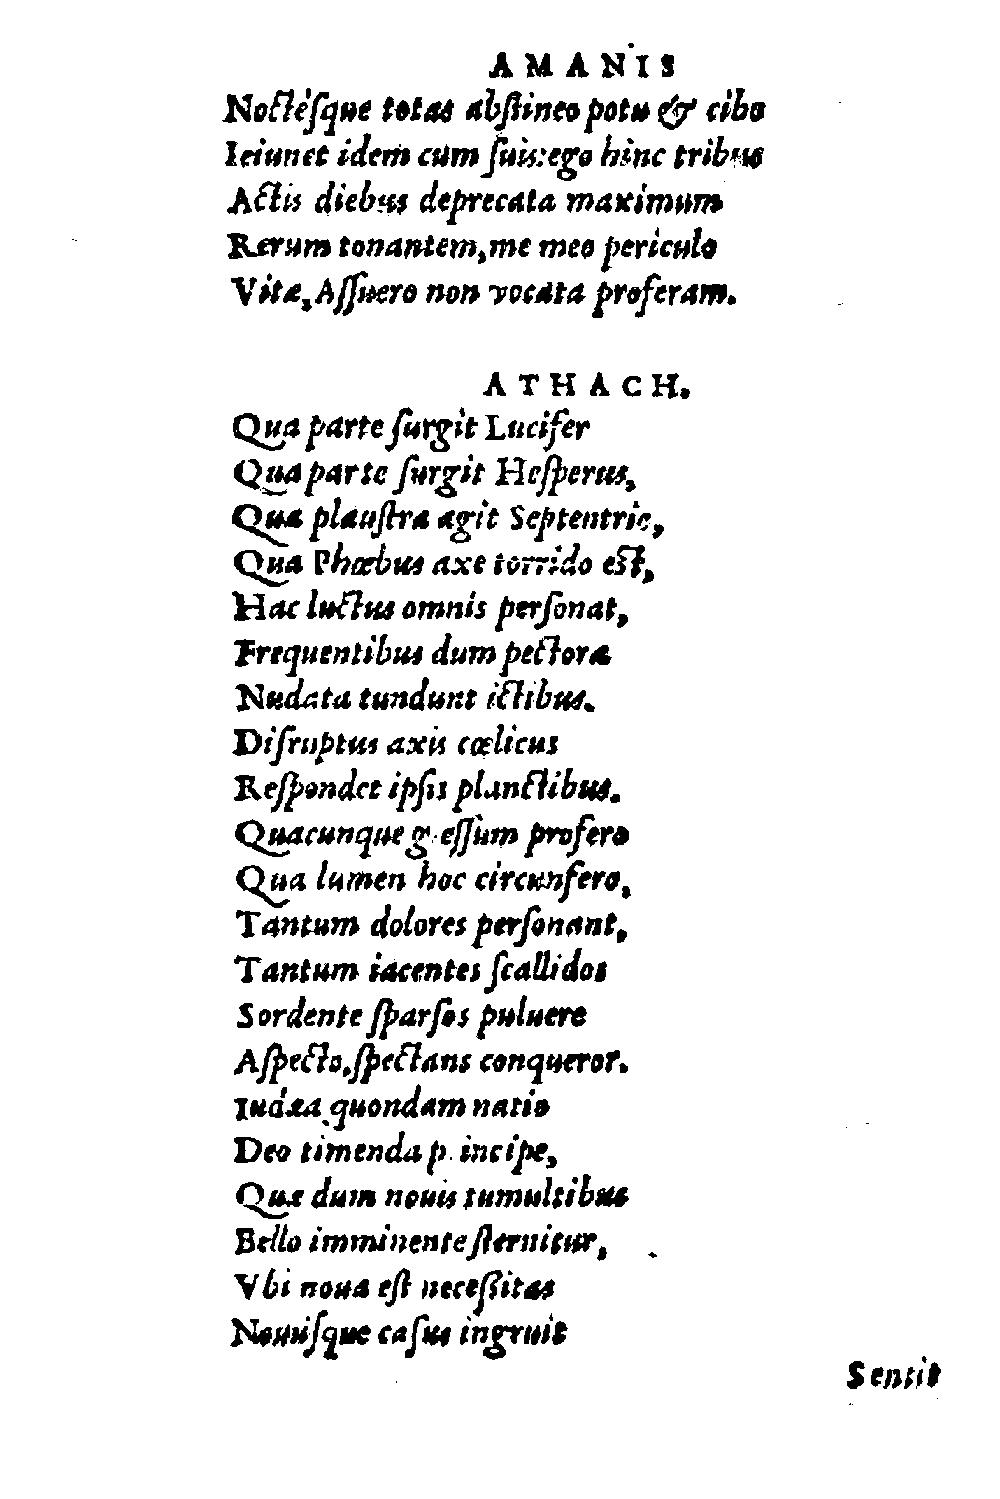 AMANIS
Noctésque totas abstineo potu & cibo
Ieiunet idem cum suis: ego hinc tribus
Actis diebus deprecata maximum
Rerum tonantem, me meo periculo
Vitæ, Assuero non vocata proferam.
ATHACH.
Qua parte surgit Lucifer
Qua parte surgit Hesperus,
Qua plaustra agit Septentrio,
Qua Phœbus axe torrido est,
Hac luctus omnis personat,
Frequentibus dum pectora
Nudata tundunt ictibus.
Disruptus axis cœlicus
Respondet ipsis planctibus.
Quacunque gressum profero
Qua lumen hoc circunfero,
Tantum dolores personant,
Tantum iacentes scallidos
Sordente sparsos puluere
Aspecto, spectans conqueror.
Iudæa quondam natio
Deo timenda principe,
Quæ dum nouis tumultibus
Bello imminente sternitur,
Vbi noua est necessitas
Nouisque casus ingruit
Sentit